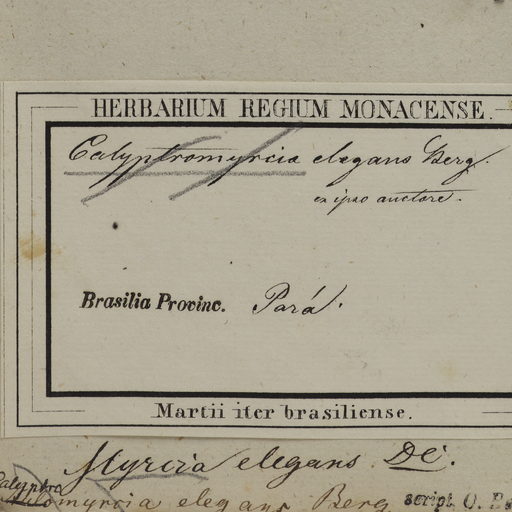 HERBARIUM REGIUM MONACENSE.
Calyptromyrcia elegans Berg.
ex ipso auctore.
Brasilia Provinc. Pará.
Martii iter brasiliense.
Myrcia elegans DC.
elegans Berg script. O.